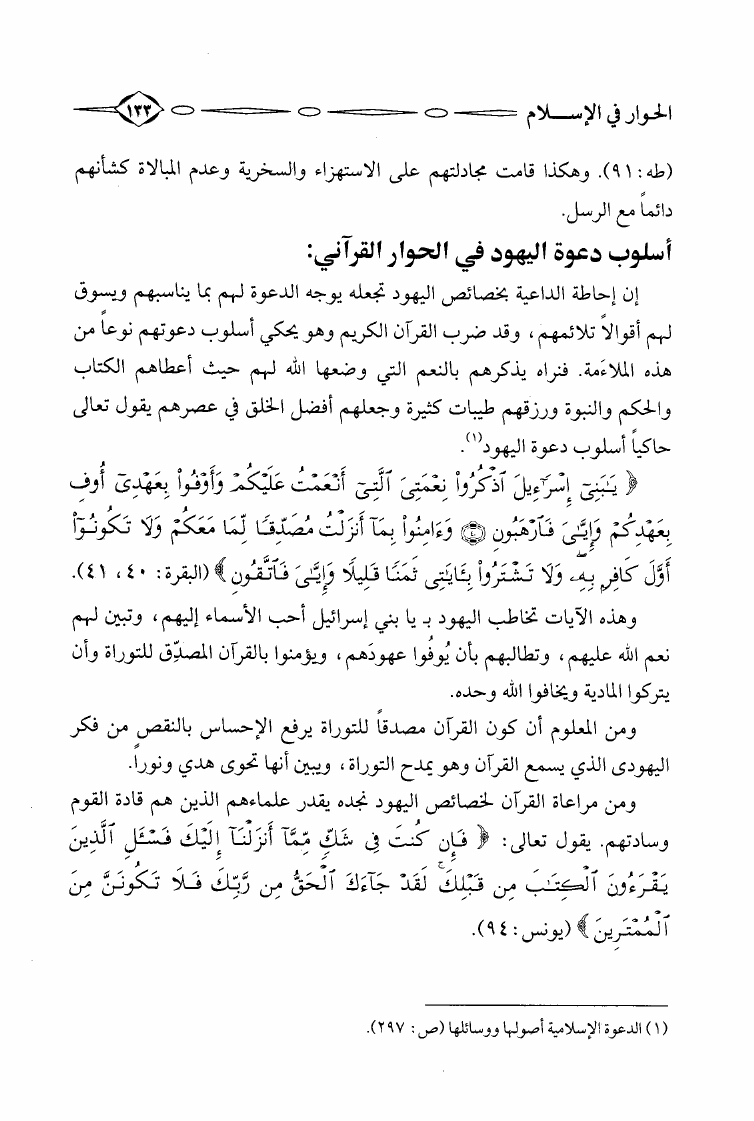 الحوار في الإسـلام ١٣٣
(طه: ٩١). وهكذا قامت مجادلتهم على الاستهزاء والسخرية وعدم المبالاة كشأنهم
دائماً مع الرسل.
أسلوب دعوة اليهود في الحوار القرآني:
إن إحاطة الداعية بخصائص اليهود تجعله يوجه الدعوة لهم بما يناسبهم ويسوق
لهم أقوالاً تلائمهم، وقد ضرب القرآن الكريم وهو يحكي أسلوب دعوتهم نوعاً من
هذه الملاءَمة. فنراه يذكرهم بالنعم التي وضعها الله لهم حيث أعطاهم الكتاب
والحكم والنبوة ورزقهم طيبات كثيرة وجعلهم أفضل الخلق في عصرهم يقول تعالى
حاكياً أسلوب دعوة اليهود(١).
﴿ يَـٰبَنِىٓ إِسْرَٰٓءِيلَ ٱذْكُرُوا۟ نِعْمَتِىَ ٱلَّتِىٓ أَنْعَمْتُ عَلَيْكُمْ وَأَوْفُوا۟ بِعَهْدِىٓ أُوفِ
بِعَهْدِكُمْ وَإِيَّـٰىَ فَٱرْهَبُونِ ۝٤٠ وَءَامِنُوا۟ بِمَآ أَنزَلْتُ مُصَدِّقًا لِّمَا مَعَكُمْ وَلَا تَكُونُوٓا۟
أَوَّلَ كَافِرٍۭ بِهِۦ ۖ وَلَا تَشْتَرُوا۟ بِـَٔايَـٰتِى ثَمَنًا قَلِيلًا وَإِيَّـٰىَ فَٱتَّقُونِ ﴾ (البقرة: ٤٠، ٤١).
وهذه الآيات تخاطب اليهود بـ يا بني إسرائيل أحب الأسماء إليهم، وتبين لهم
نعم الله عليهم، وتطالبهم بأن يُوفُوا عهودَهم، ويؤمنوا بالقرآن المصدِّق للتوراة وأن
يتركوا المادية ويخافوا الله وحده.
ومن المعلوم أن كون القرآن مصدقاً للتوراة يرفع الإحساس بالنقص من فكر
اليهودى الذي يسمع القرآن وهو يمدح التوراة، ويبين أنها تحوى هدي ونوراً.
ومن مراعاة القرآن لخصائص اليهود نجده يقدر علماءهم الذين هم قادة القوم
وسادتهم. يقول تعالى: ﴿ فَإِن كُنتَ فِى شَكٍّ مِّمَّآ أَنزَلْنَآ إِلَيْكَ فَسْـَٔلِ ٱلَّذِينَ
يَقْرَءُونَ ٱلْكِتَـٰبَ مِن قَبْلِكَ ۚ لَقَدْ جَآءَكَ ٱلْحَقُّ مِن رَّبِّكَ فَلَا تَكُونَنَّ مِنَ
ٱلْمُمْتَرِينَ ﴾ (يونس: ٩٤).
(١) الدعوة الإسلامية أصولها ووسائلها (ص: ٢٩٧).